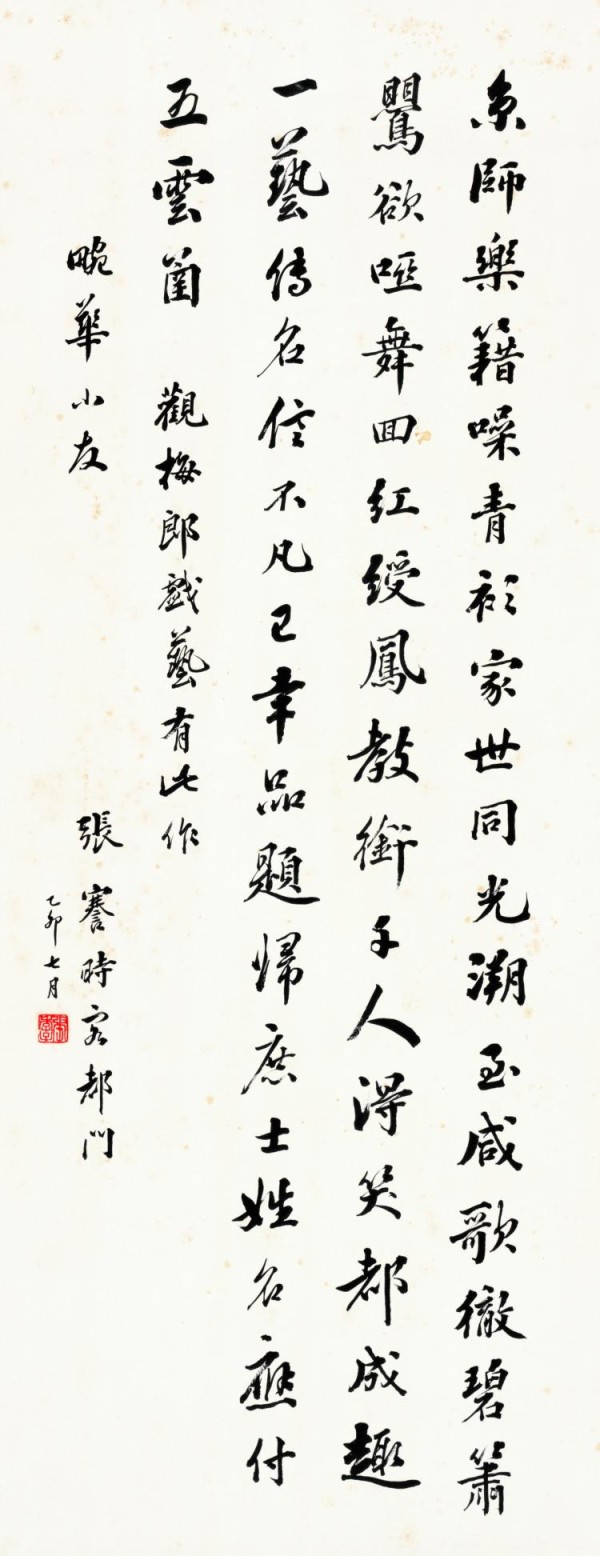 京師樂籍噪青衫家世同光溯至咸歌徹碧簫
鸎欲啞舞回紅綬鳳教銜千人得笑都成趣
一藝傳名信不凡已幸品題歸庶士姓名應付
五雲函
觀梅郎戲藝有此作
畹華小友
張謇時客都門
乙卯七月
張謇